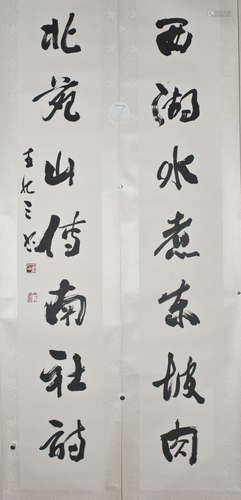 西湖水煮东坡肉
北苑山传南社诗